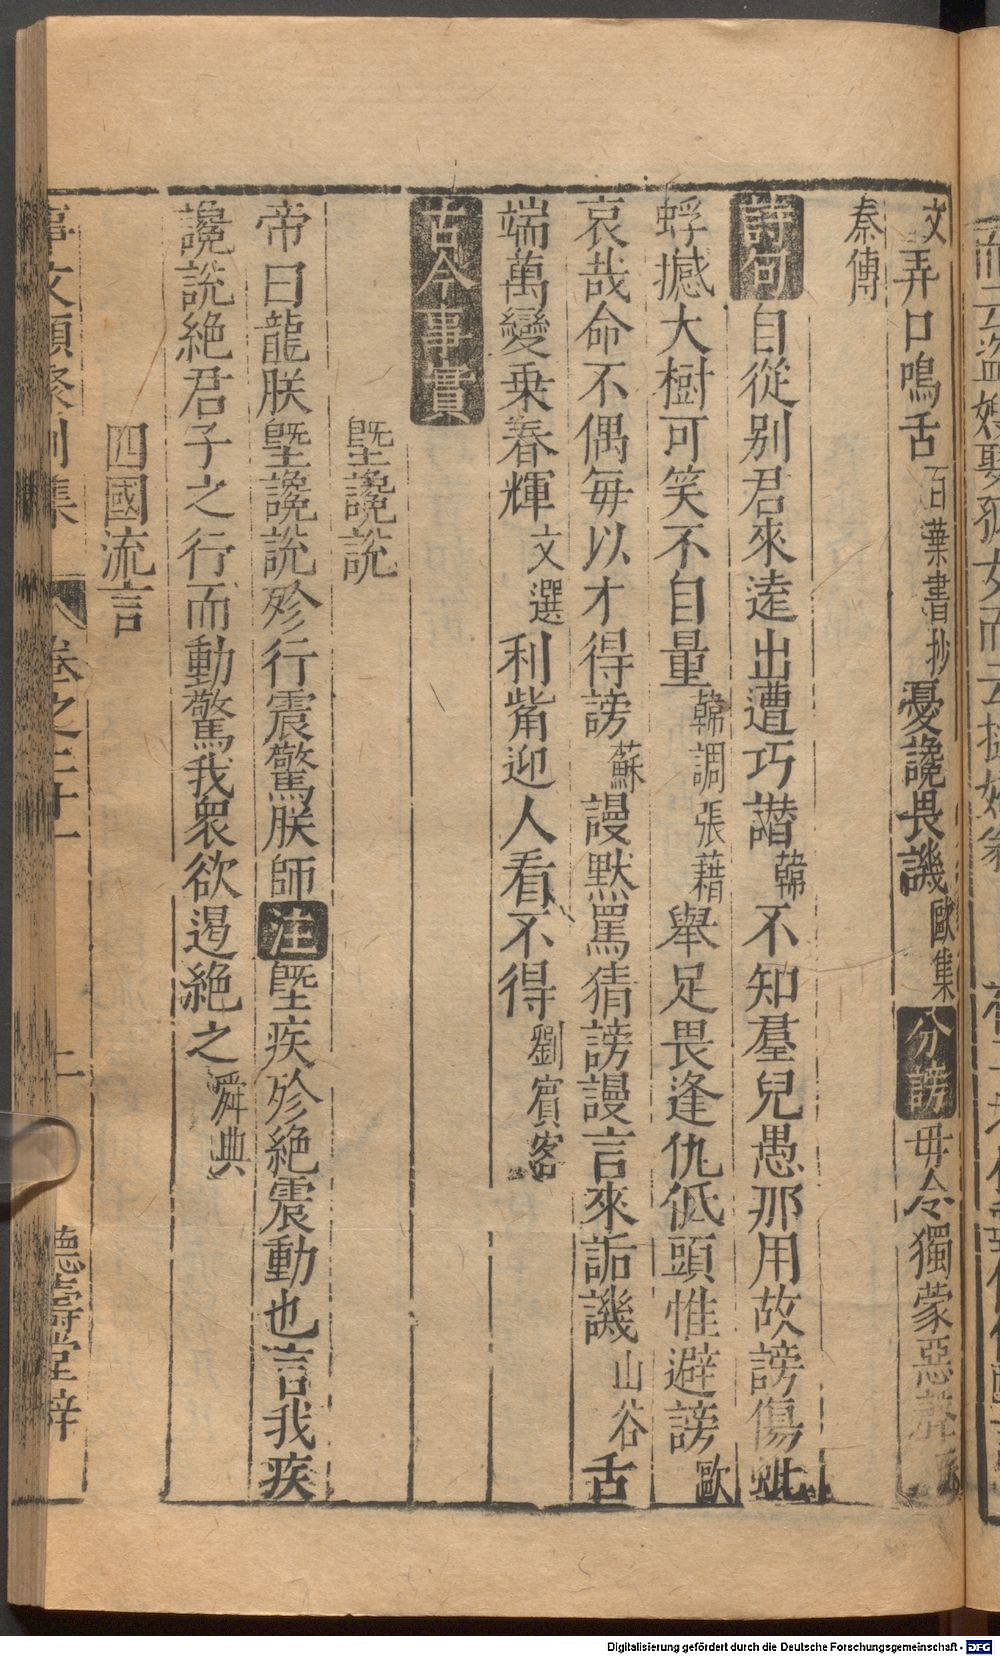 文弄口鳴舌百葉書抄憂讒畏譏歐集分謗毋令獨蒙惡聲
秦傳
詩句自從別君來遠出遭巧譖韓不知羣兒愚那用故謗傷蚍
蜉撼大樹可笑不自量韓調張藉舉足畏逢仇低頭惟避謗歐
哀哉命不偶每以才得謗蘇謾黙罵猜謗謾言來詬譏山谷舌
端萬變乗春輝文選利觜迎人看不得劉賔客
古今事實
堲讒說
帝曰龍朕堲讒說殄行震驚朕師注堲疾殄絶震動也言我疾
讒說絶君子之行而動驚我衆欲遏絶之舜典
四國流言
事文類聚別集 卷之二十一 上 德壽堂梓
Digitalisierung gefördert durch die Deutsche Forschungsgemeinschaft - DFG